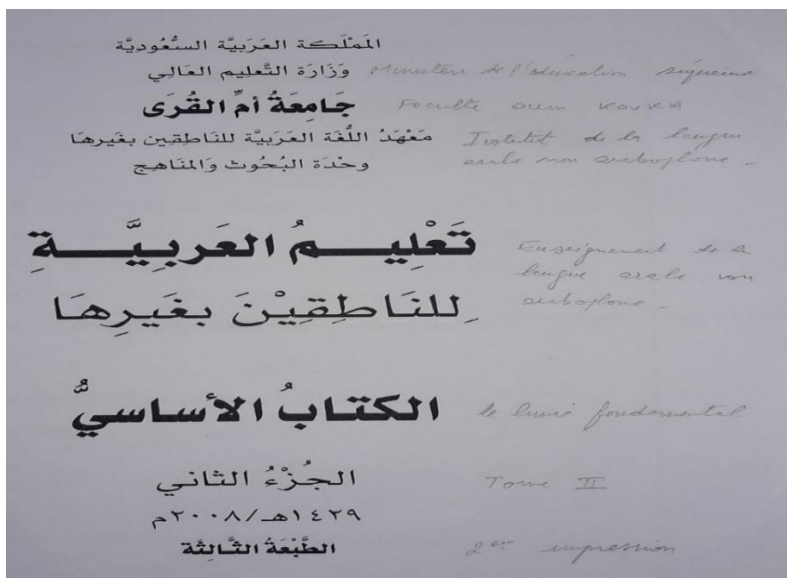 المَمْلَكة العَرَبيَّة السُّعُوديَّة
وَزَارَة التَّعليم العَالي Ministère de l'éducation supérieure
جَامِعَةُ أمِّ القُرَى Faculté oum koura
مَعْهَدُ اللُّغَة العَرَبيَّة للنَاطِقِين بغَيرهَا Institut de la langue
وحْدَة البُحُوث وَالمنَاهج arabe non arabophone -
تَعْلِيمُ العَرَبِيَّةِ Enseignement de la
langue arabe non
لِلنَاطِقِيْنَ بغَيرِهَا arabophone -
الكتَابُ الأسَاسيُّ le livre fondamental
الجُزْءُ الثَاني Tome II
١٤٢٩هـ/٢٠٠٨م
الطَّبْعَةُ الثَّالِثَة impression